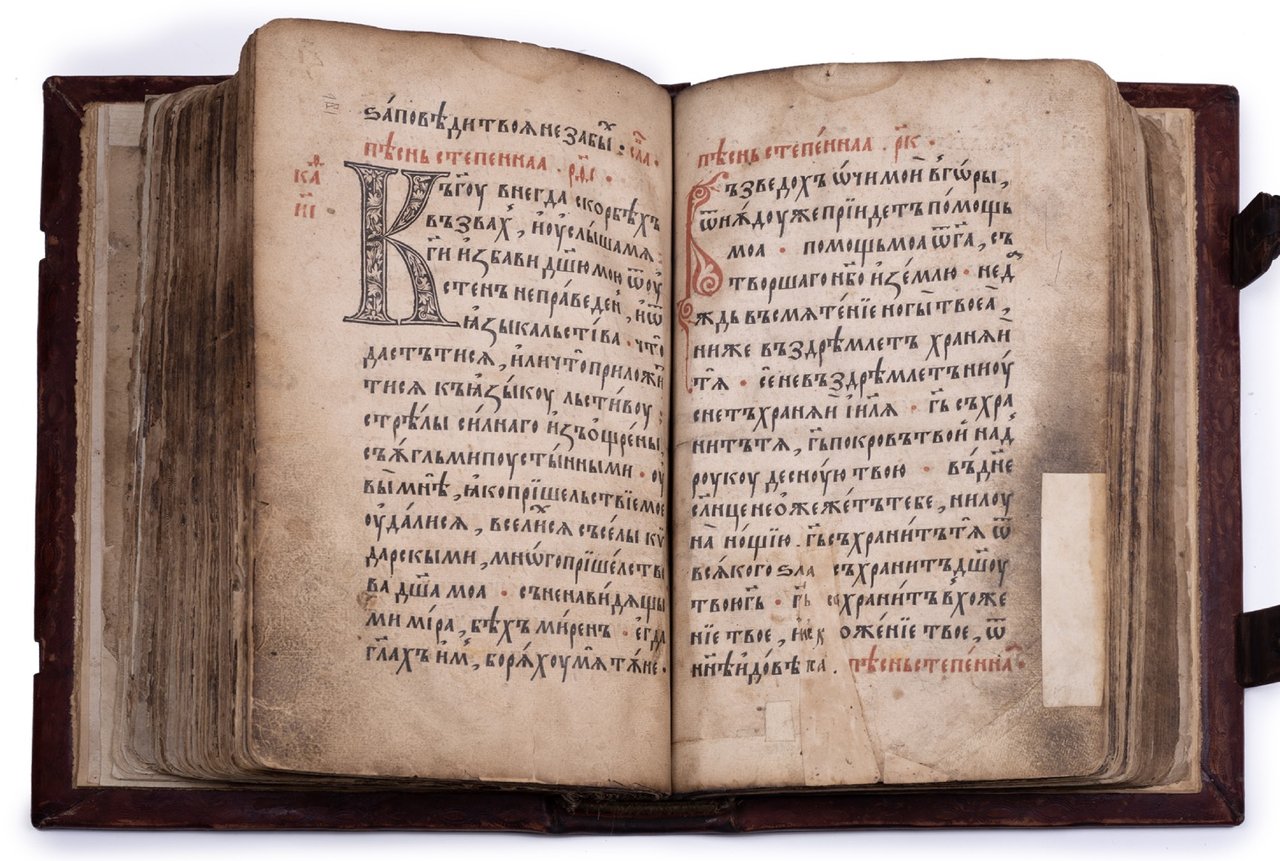 ѕа́повѣ́дитвоѧ̀незабы́х : сла̑.
пѣ́снь степе́ннаа . рѳ҃і .
каѳ
и҃і
Къгоу внегда скорбѣ́хъ
възвах̾, и҆оуслы́шамѧ .
гв҃и и҆збави дш҃ю мою ѿоу
стенъ непра́веден̾, и҆ѿ
ѧ҆зы́ка льсти́ва . что̀
дастътисѧ, и҆личто̀приложи́
тисѧ къѧ҆зы́коу льсти́воу :
стрѣ́лы си́лнаго и҆зъѡщре́ны,
съѫ́гльмипоусты́нными . оу
вы́мнѣ, ꙗ҆копрїше́льствїемое
оу҆да́лисѧ, вселѝсѧ съсе́лы ки
да́рскыми, мнѡ́гопрїше́лство
ва дш҃а моа . съненави́дѧщы
ми ми́ра, бѣ́хъ ми́ренъ . є҆гда̀
гл҃ахъ и҆м̾, борѧ́хоумѧ та́не .
пѣ́снь степе́ннаа . рк҃ .
Възведохъ ѡ҆чи мои̑ в̾гѡры,
ѿню́доу же прїи́детъ по́мощь
моа . помощьмоа ѿг҃а, съ
творшаго нб҃о и҆зе́млю . неда́
ждь въ смѧте́нїе ногы̀ твоеа̀,
ниже въздре́млетъ хранѧ́й
тѧ̀ . се невъздре́млетъ ниоу
снетъ хранѧ́й і҆и҃лѧ . г҃ь съхра
ни́тътѧ, г҃ь покровъ твой над̾
роукоу десно́ую твою . въ дн҃е
сл҃нце не ѡ҆жеже́тъ тебе, ни лоу
на̀ но́щїю . г҃ь съхрани́тътѧ ѿ
всѧ́кого ѕла съхрани́тъ дш҃оу
твою г҃ь . г҃ь съхрани́тъ в̾хоже
нїе твое, и҆сх ожде́нїе твое, ѿ
нн҃ѣ и҆ до вѣ́ка . пѣ́сньстепе́нна .